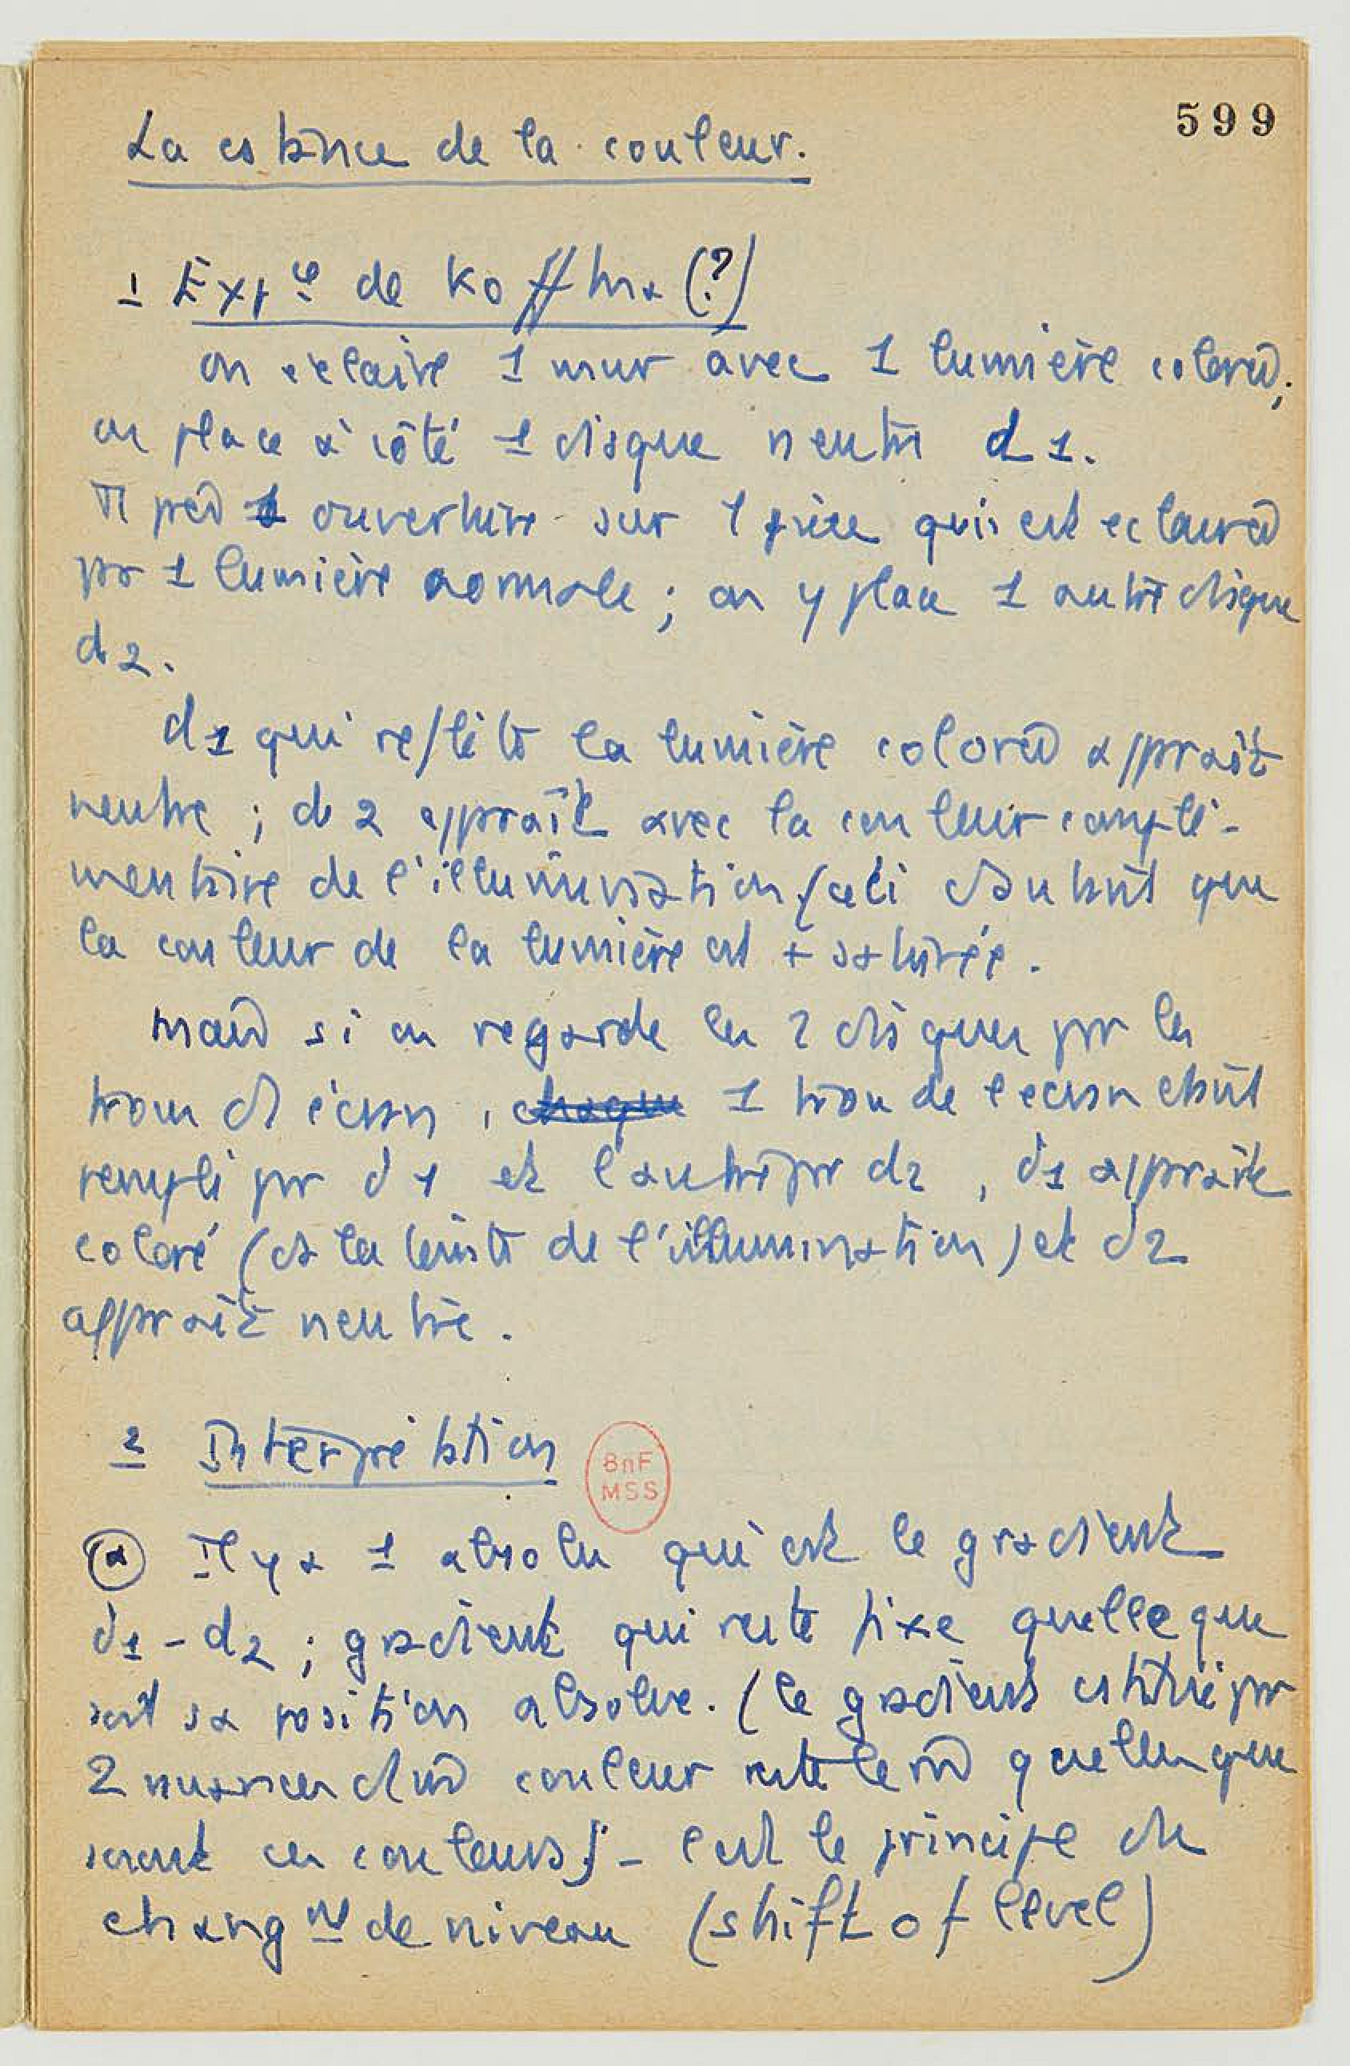 599
La cstance de la couleur.
1 Expce de Koffka (?)
on éclaire 1 mur avec 1 lumière colorée;
on place à côté 1 disque neutre d1.
1 ouverture sur 1 pièce qui est éclairée
par 1 lumière normale ; on y place 1 autre disque
d2.
d1 qui reflète la lumière colorée apparaît
neutre ; d2 apparaît avec la couleur complé-
mentaire de l'illumination, celà d'autant que
la couleur de la lumière est + saturée.
mais si on regarde les 2 disques par les
trous d écran, 1 trou de l'écran étant
rempli par d1 et l'autre par d2, d1 apparaît
coloré (ds la teinte de l'illumination) et d2
apparaît neutre.
2 Interprétation
(a) Il y a 1 absolu qui est le gradient
d1-d2 ; gradient qui reste fixe quelle que
soit sa position absolue. (le gradient cstitué par
2 nuances d'une couleur reste le même quelles que
soient ces couleurs) - c'est le principe du
changnt de niveau (shift of level)
BnF
MSS